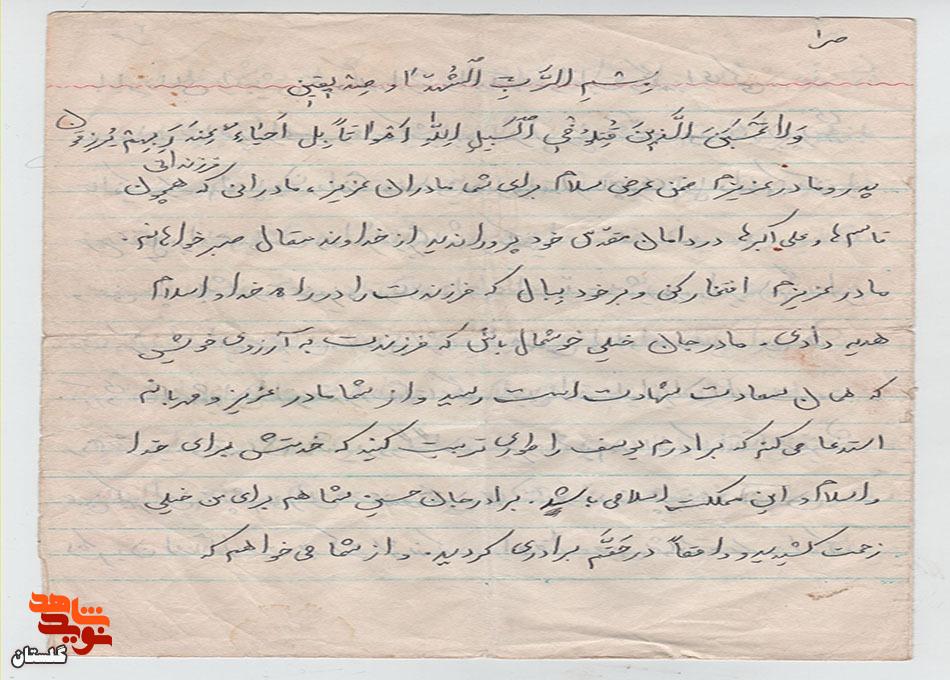 ص ۱
بسم الرَبِ الشُهدّا و صدیقین
وَلا تَحْسَبَنَ الَّذینَ قُتِلوُ فی السَبیلِ اللهِ اَمْواتاً بَل اَحیاءٌ عِندَ رَبِهِم یُرزَقون
پدر و مادر عزیزم ضمن عرض سلام برای شما مادران عزیز، مادرانی که فرزندانی همچون
قاسم ها و علی اکبرها در دامان مقدس خود پروراندید از خداوند متعال صبر خواهانم.
مادر عزیزم افتخار کن و بر خود ببال که فرزندت را در راه خدا و اسلام
هدیه دادی. مادر جان خیلی خوشحال باش که فرزندت به آرزوی خویش
که همان سعادت شهادت است رسید و از شما مادر عزیز و مهربانم
استدعا می کنم که برادرم یوسف را طوری تربیت کنید که خدمتش برای خدا
و اسلام و این مملکت اسلامی باشد. برادر جان حسین شما هم برای من خیلی
زحمت کشیدید و واقعاً در حقَّم برادری کردید. و از شما می خواهم که
نوید شاهد
گلستان